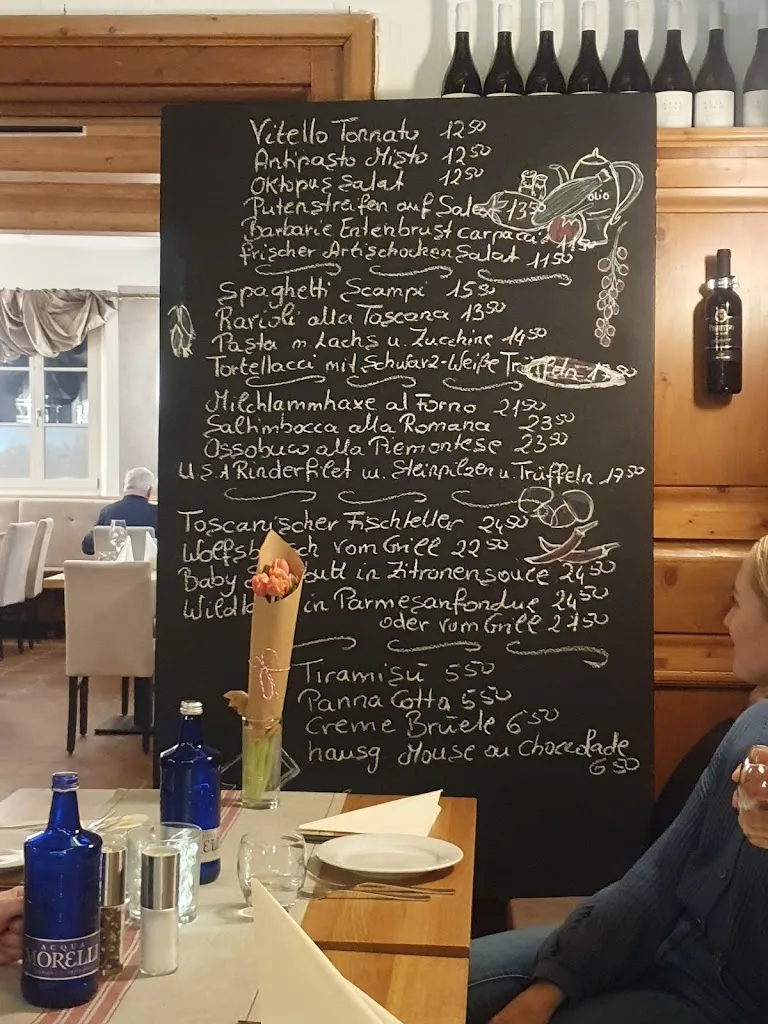 Vitello Tonnato 12⁵⁰
Antipasto Misto 12⁵⁰
Oktopus Salat 12⁵⁰
Putenstreifen auf Salat 13⁵⁰
Barbarie Entenbrust carpaccio
frischer Artischocken Salat 11⁵⁰
Spaghetti Scampi 15⁵⁰
Ravioli alla Toscana 13⁵⁰
Pasta m. Lachs u. Zucchine 14⁵⁰
Tortellacci mit Schwarz-Weiße Trüffeln
Milchlammhaxe al Forno 21⁵⁰
Saltimbocca alla Romana 23⁵⁰
Ossobuco alla Piemontese 23⁵⁰
U.S.A Rinderfilet m. Steinpilzen u. Trüffeln
Toscanischer Fischteller 24⁵⁰
vom Grill 22⁵⁰
Baby in Zitronensouce 24⁵⁰
in Parmesanfondue 24⁵⁰
oder vom Grill
Tiramisú 5⁵⁰
Panna Cotta 5⁵⁰
Creme Brúele 6⁵⁰
hausg Mouse au Choccolade
6⁵⁰
OLIO
ACQUA
MORELLI